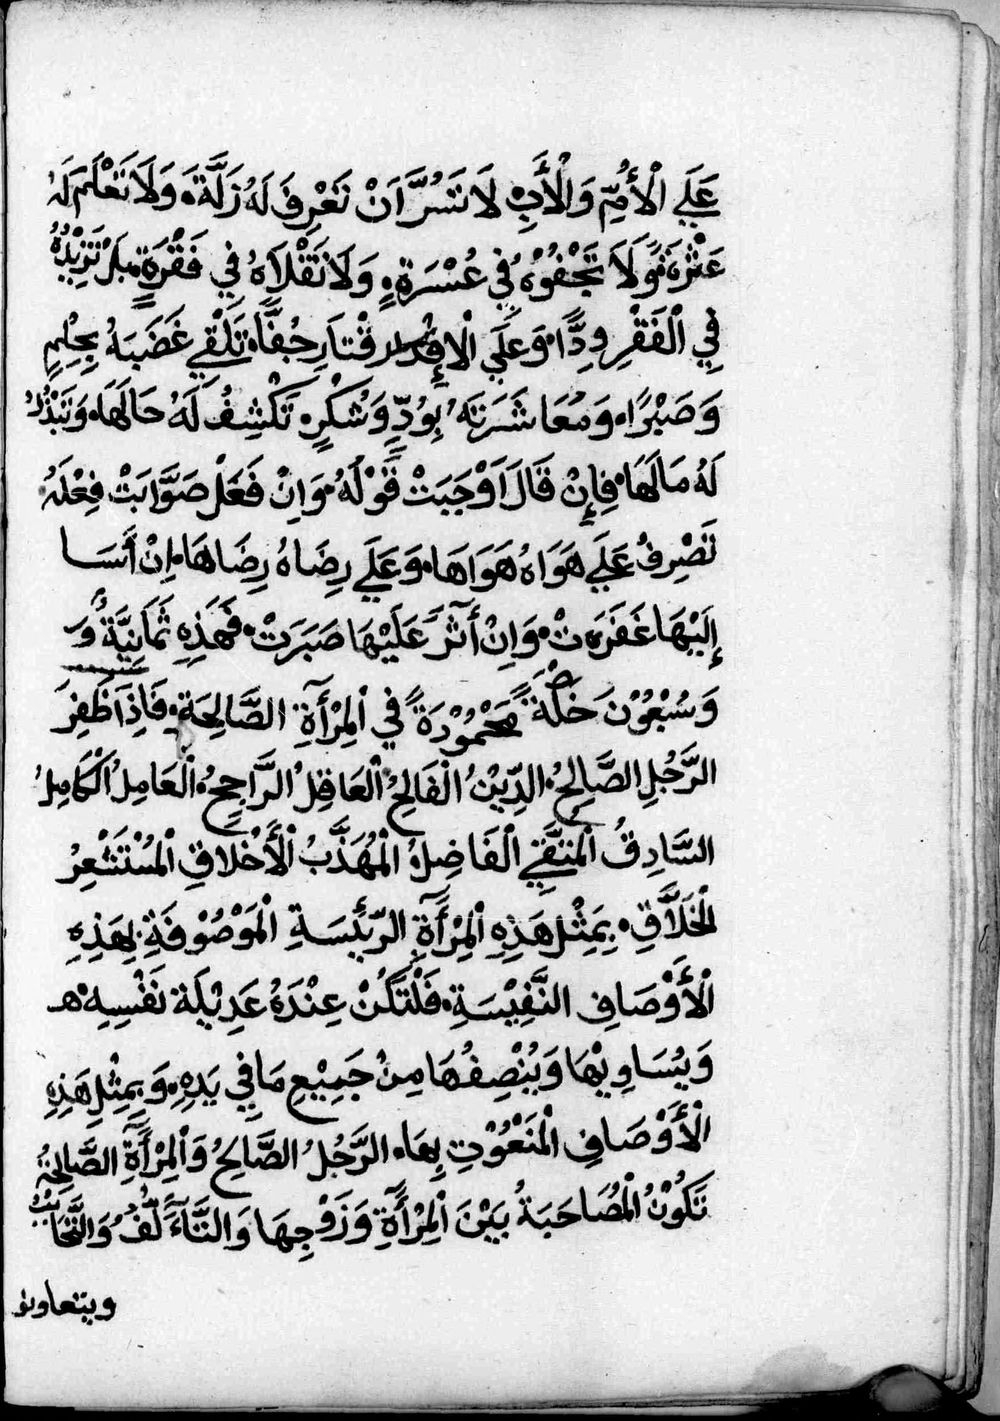 عَلَي الْأُمِّ وَالْأَبِ لَا تَسُرَّ اَنْ تَعْرِفَ لَهُ زَلَّةً وَلَا تَعْلَم لَهُ
عَثْرَةً وَلَا تَجْفُوْهُ فِي عُسْرَةٍ وَلَا تَقْلَاهُ فِي فَقْرَةٍ بَلْ تَزِيْدُهُ
فِي الْفَقْرِ وِدًّا وَعَلَي الْاِقْتَارِ حُفًّا تَلْقِي غَضَبَهُ بِحِلْمٍ
وَصَبْرًا وَمُعَاشَرَتَهُ بِوُدٍّ وَشُكْرٍ تَكْشِفُ لَهُ حَالَهَا وَتَبْذُلُ
لَهُ مَالَهَا فَاِنْ قَالَ اَوْجَبَتْ قَوْلَهُ وَاِنْ فَعَلْ صَوَّابَتْ فِعْلَهُ
تَصْرِفُ عَلَي هَوَاهُ هَوَاهَا وَعَلَي رِضَاهُ رِضَاهَا اِنْ أَسَا
اِلَيْهَا غَفَرَتْ وَاِنْ أَثَرَ عَلَيْهَا صَبَرَتْ فَهَذِهِ ثَمَانِيَّةٌ وَ
وَسُبْعُوْنَ خَصْلَةً مَحْمُوْدَةً فِي الْمِرْأَةِ الصَّالِحَةِ فَاِذَا ظَفِرَ
الرَّجُلِ الصَّالِحُ الدِّيْنُ الْفَالِحُ الْعَاقِلُ الرَّاجِحُ الْعَامِلُ الْكَامِلُ
السَّادِقُ الْمُتَّقِي الْفَاضِلُ الْمُهَذَّبُ الْأَخْلَاقِ الْمُسْتَشْعِرُ
الْخَلَّاقِ بِمِثْلِ هَذِهِ الْمِرْأَةِ الرَّئِسَةِ الْمَوْصُوْفَةِ بِهَذِهِ
الْأَوْصَافِ النَّفِيْسَةِ فَلْتَكُنْ عِنْدَهُ عَدِيْلَة نَفْسِهِ هـ
وَيُسَاوِيْهَا وَيُنْصِفُهَا مِنْ جَمِيْعِ مَا فِي يَدِهِ وَبِمِثْلِ هَذِهِ
الْأَوْصَافِ الْمَنْعُوْتِ بِهَا الرَّجُلُ الصَّالِحُ وَالْمِرْأَةِ الصَّالِحَةُ
تَكُوْنُ الْمُصَاحَبَةُ بَيْنَ الْمِرْأَةِ وَزَوْجِهَا وَالتَّآلُفُ وَالتَّحَابُبُ
ويتعاونو